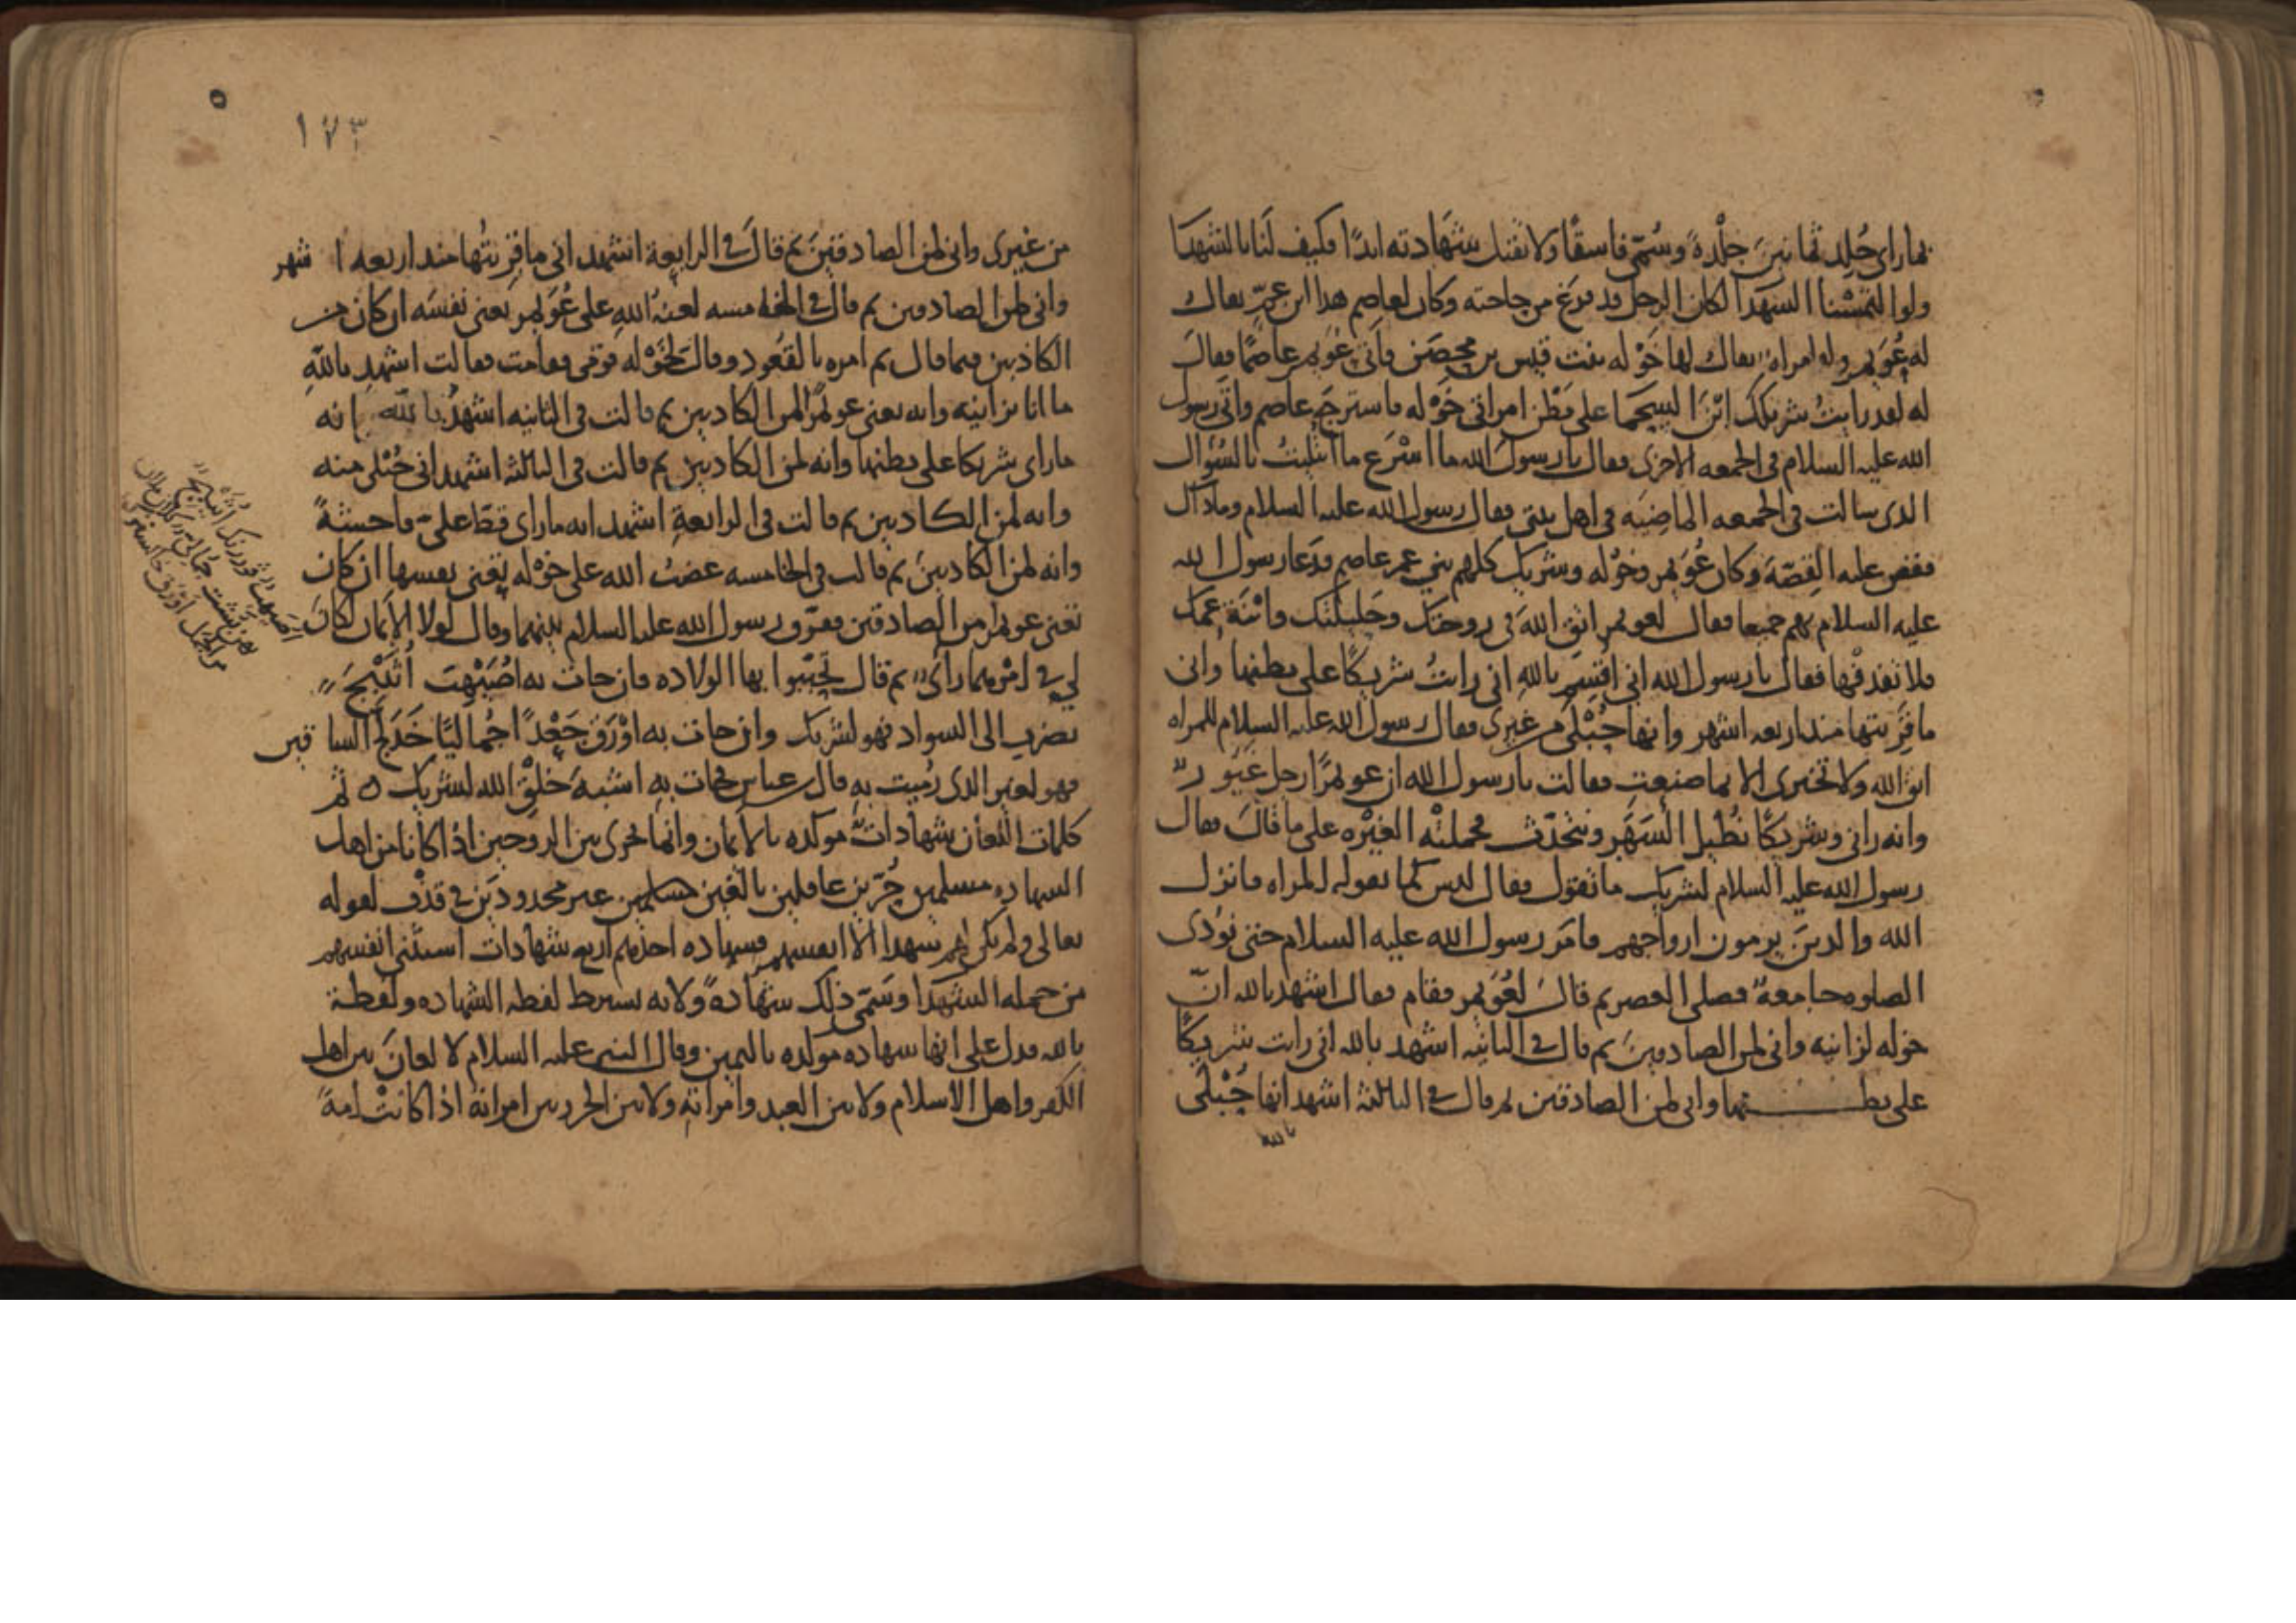 بما راى جُلِد ثمانينَ جلْدةً وسُمّى فاسقًا ولا تقبل شهَادته ابدًا فكيف لنا بالشهدا
ولو التمَسْنا الشهدا لكان الرجل قد فرغ من حاجته وكان لعاصم هذا ابن عمّ يقال
له عُوَيمر وله امراة يقال لها خَوْله بنت قيس بن محصَن فاتى عُويمر عاصمًا فقال
له لقد رايتُ شريكَ ابْنَ السحما على بَطْن امراتى خَوْله فاسترجَع عاصم واتى رسول
الله عليه السلام فى الجمعه الاخرى فقال يا رسول الله ما اسْرَع ما ابتُليتُ بالسُّؤال
الذى سالت فى الجمعه الماضِيَه فى اهل بيتى فقال رسول الله عليه السلام وما ذاك
فقص عليه القِصّة وكان عُوَيمر وخَوْله وشريك كلهم بنى عمر عاصم فدَعا رسول الله
عليه السلام بهم جميعا فقال لعويمر اتق اللهَ فى زوجتك وحَليلتك وابْنَة عمك
فلا تقذفْها فقال يا رسول الله انى اُقسِم باللهِ انى رايتُ شريكًا على بطنها وانى
ما قَرِبتها منذ اربعه اشهر وانها حُبْلَى من غيرى فقال رسول الله عليه السلام للمراه
اتق الله ولا تخبرى الا بما صنعت فقالت يا رسول الله ان عويمرًا رجل غَيورٌ
وانه رانى وشريكًا نُطيل السَهَر ونتحدّث فحملتْه الغيْره على ما قالَ فقال
رسول الله عليه السلام لشريك ما تقول فقال ليس كما تقوله المراه فانزل
الله والذينَ يرمون ازواجهم فامَر رسول الله عليه السلام حتى نُودى
الصلوه جامعةً فصلى العصر ثم قالَ لعُوَيمر فقام فقال اشهد بالله انّ
خوله لزانيه وانى لمن الصادقينَ ثم قال فى الثانيه اشهد بالله انى رايت شريكًا
على بطنها وانى لمن الصادقين ثم قال فى الثالثة اشهد انها حُبْلَى
بالله
٥
١٧٣
من غيرى وانى لمن الصادقينَ ثم قالَ فى الرابعة اشهد انى ما قرِبتُها منذ اربعه اشهر
وانى لمن الصادقين ثم قال فى الخامسه لعنةُ اللهِ على عُوَيمر يعنى نفسَه ان كان من
الكاذبين فيما قال ثم امره بالقعُود وقال لخَوْله قومى فقامت فقالت اشهد باللهِ
ما انا بزانيه وانه يعنى عويمرًا لمن الكاذبين ثم قالت فى الثانيه اشهدُ بالله انه
ما راى شريكا على بطنها وانه لمن الكاذبين ثم قالت فى الثالثه اشهد انى حُبْلى منه
وانه لمن الكاذبين ثم قالت فى الرابعةِ اشهد انه ما راى قطّ علىّ فاحشةً
وانه لمن الكاذبينَ ثم قالت فى الخامسه غضبُ الله على خوْله يَعْنى نفسها ان كان
تعنى عويمر من الصادقين ففرّق رسول الله عليه السلام بينهما وقال لولا الاَيمان لكانَ
لى فى امْرهما راْىٌ ثم قال تحَيّنوا بها الولاده فان جات به اُصَيْهِبَ اُثَيْبجَ
يضرب الى السواد فهو لشريك وان جات به اوْرَق جَعْدًا جُماليًا خَدَلّجَ الساقين
فهو لغير الذى رُميت به قال ابن عباس فجات به اشبهَ خلْق الله لشريك ٥ ثم
كلمات اللعان شهاداتٌ موكده بالاَيمان وانها تجرى بين الزوجين اذا كانا من اهل
الشهاده مسلمين حُرّين عاقلين بالغين غير محدودَين فى قذف لقوله
تعالى ولم يكن لهم شهدا الا انفسهم فشهاده احدهم اربع شهادات استثنى انفسهم
من جمله الشهَدا وسَمّى ذلك شهادةً ولانه يشترط لفظه الشهاده ولفظة
بالله فدل على انها شهاده موكده باليمين وقال النبى عليه السلام لا لعانَ بين اهل
الكفر واهل الاسلام ولا بين العبد وامراتهِ ولا بين الحر وبين امراته اذا كانتْ اَمةً